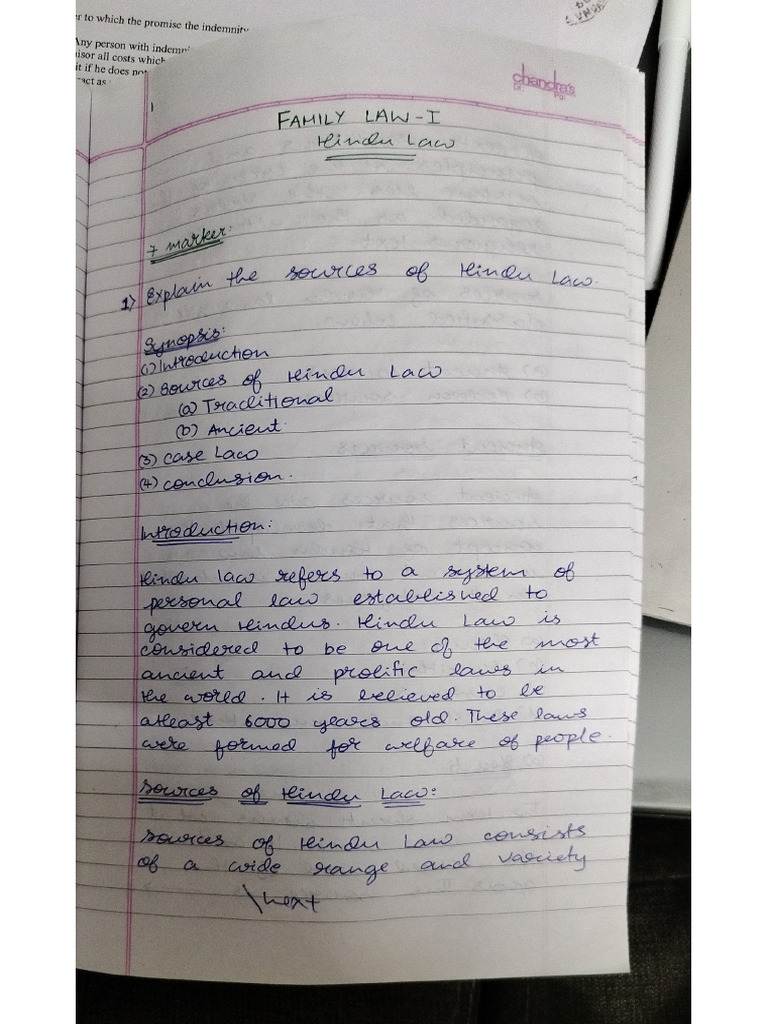 er to which the promise the indemnity
Any person with indemni
isor all costs which
it if he does not
ract as
chandra's
1
FAMILY LAW - I
Hindu Law
7 marker:
1) Explain the sources of Hindu Law.
Synopsis:
(1) Introduction
(2) Sources of Hindu Law
(a) Traditional
(b) Ancient.
(3) Case Law
(4) Conclusion.
Introduction:
Hindu law refers to a system of
personal law established to
govern Hindus. Hindu Law is
considered to be one of the most
ancient and prolific laws in
the world. It is believed to be
atleast 6000 years old. These laws
were formed for welfare of people.
Sources of Hindu Law:
Sources of Hindu Law consists
of a wide range and variety
\next